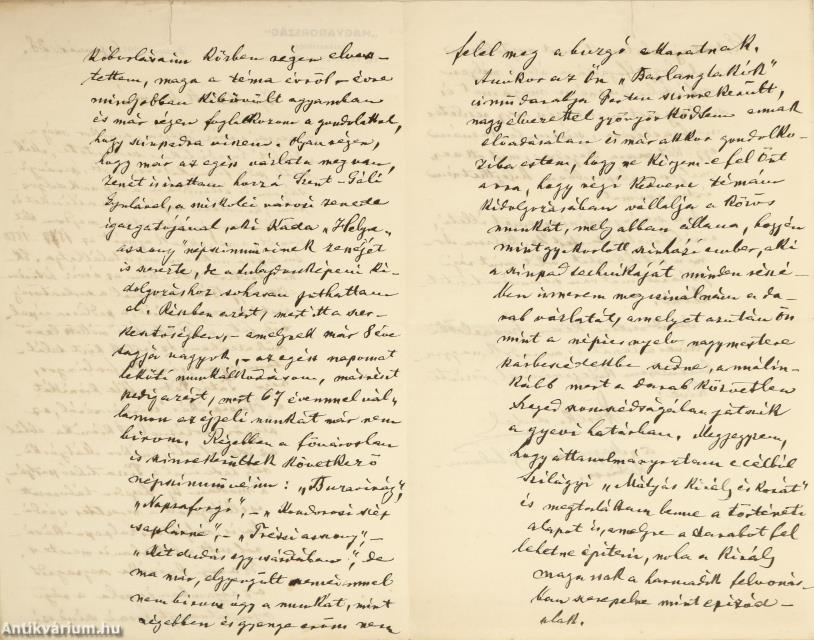 kóborlásaim közben régen elven-
tettem, maga a téma évről-évre
mindjobban kibővült agyamban
és már régen foglalkozom a gondolattal,
hogy szinpadra viszem. Olyan régen,
hogy már az egész vázlata megvan,
zenét is irattam hozzá Szent-Gáli
Gyulával, a miskolci városi zenede
igazgatójával, aki Kada „Helya-
asszony" népszinművének zenéjét
is szerezte, de a tulajdonképeni ki-
dolgozáshoz sohasem juthattam
el. Részben azért, mert itt a szer-
kesztőségben, – amelynek már 8 éve
tagja vagyok, – az egész napomat
leköti munkálkodásom, másrészt
pedig azért, mert 67 évemmel vál-
lamon az éjjeli munkát már nem
birom. Régebben a fővárosban
is szinrekerültek következő
népszinműveim: „Buzavirág",
„Napraforgó", – „Kondorosi szép
csaplárné", – „Trézsi asszony", –
„Két dudás egy csárdában", de
ma már, elgyengült szemeimmel
nem birom úgy a munkát, mint
régebben és gyenge erőm nem
felel meg a buzgó akaratnak.
Amikor az Ön „Barlanglakók"
cimű darabja Pesten szinrekerült,
nagy élvezettel gyönyörködtem annak
előadásában és már akkor gondolko-
ziba estem, hogy ne kérjem-e fel Önt
arra, hogy régi kedvenc témám
kidolgozásában vállalja a közös
munkát, mely abban állana, hogy én
mint gyakorlott szinházi ember, aki
a szinpad technikáját minden részé-
ben ismerem megcsinálnám a da-
rab vázlatát, amelyet azután Ön
mint a népies nyelv nagymestere
párbeszédekbe szedne, annálin-
kább mert a darab közvetlen
Szeged szomszédságában játszik
a gyevi határban. Megjegyzem,
hogy áttanulmányoztam e célból
Szilágyi „Mátyás király és korát"
és megtaláltam benne a történeti
alapot is, amelyre a darabot fel
lehetne épiteni, hol a Király
maga csak a harmadik felvonás-
ban szerepelne mint epizód-
alak.
Antikvárium.hu